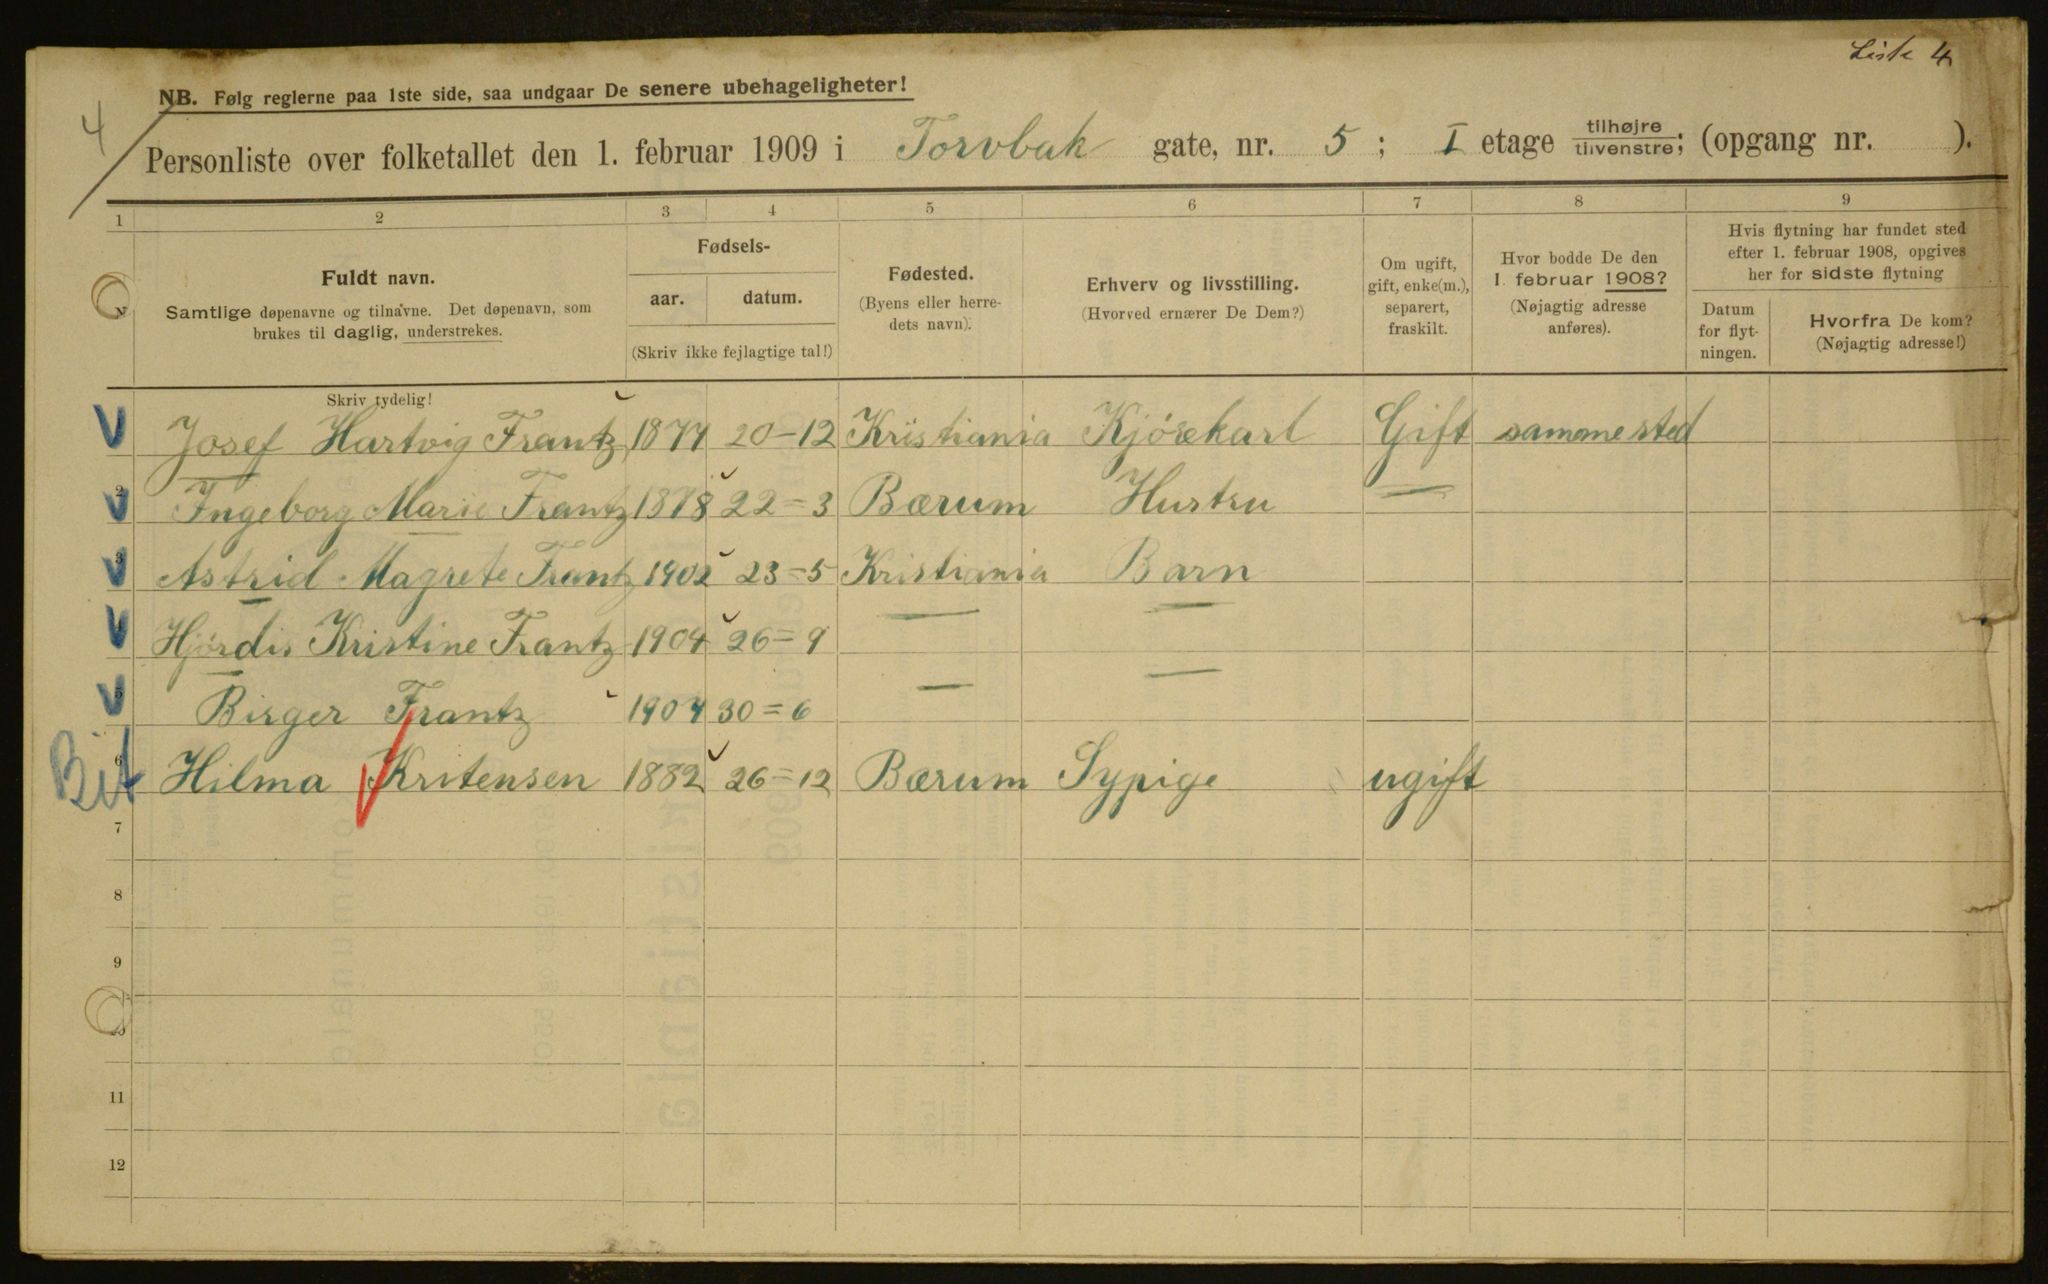 Liste 4
4
NB. Følg reglerne paa 1ste side, saa undgaar De senere ubehageligheter!
Personliste over folketallet den 1. februar 1909 i Torvbak gate, nr. 5; I etage tilhøjre tilvenstre; (opgang nr. ).
1 2 3 4 5 6 7 8 9
Fuldt navn.
Samtlige døpenavne og tilnavne. Det døpenavn, som
brukes til daglig, understrekes.
Skriv tydelig!
Fødsels-
aar. datum.
(Skriv ikke fejlagtige tal!)
Fødested.
(Byens eller herre-
dets navn).
Erhverv og livsstilling.
(Hvorved ernærer De Dem?)
Om ugift,
gift, enke(m.),
separert,
fraskilt.
Hvor bodde De den
1. februar 1908?
(Nøjagtig adresse
anføres).
Hvis flytning har fundet sted
efter 1. februar 1908, opgives
her for sidste flytning
Datum
for flyt-
ningen.
Hvorfra De kom?
(Nøjagtig adresse!)
V Josef Hartvig Frantz 1877 20-12 Kristiania Kjörekarl Gift sammested
V 2 Ingeborg Marie Frantz 1878 22=3 Bærum Hustru —
V 3 Astrid Magrete Frantz 1902 23=5 Kristiania Barn
V Hjördis Kristine Frantz 1904 26=9 — —
V 5 Birger Frantz 1907 30=6 — —
Bit 6 Hilma Kritensen 1882 26=12 Bærum Sypige ugift
7
8
9
10
11
12